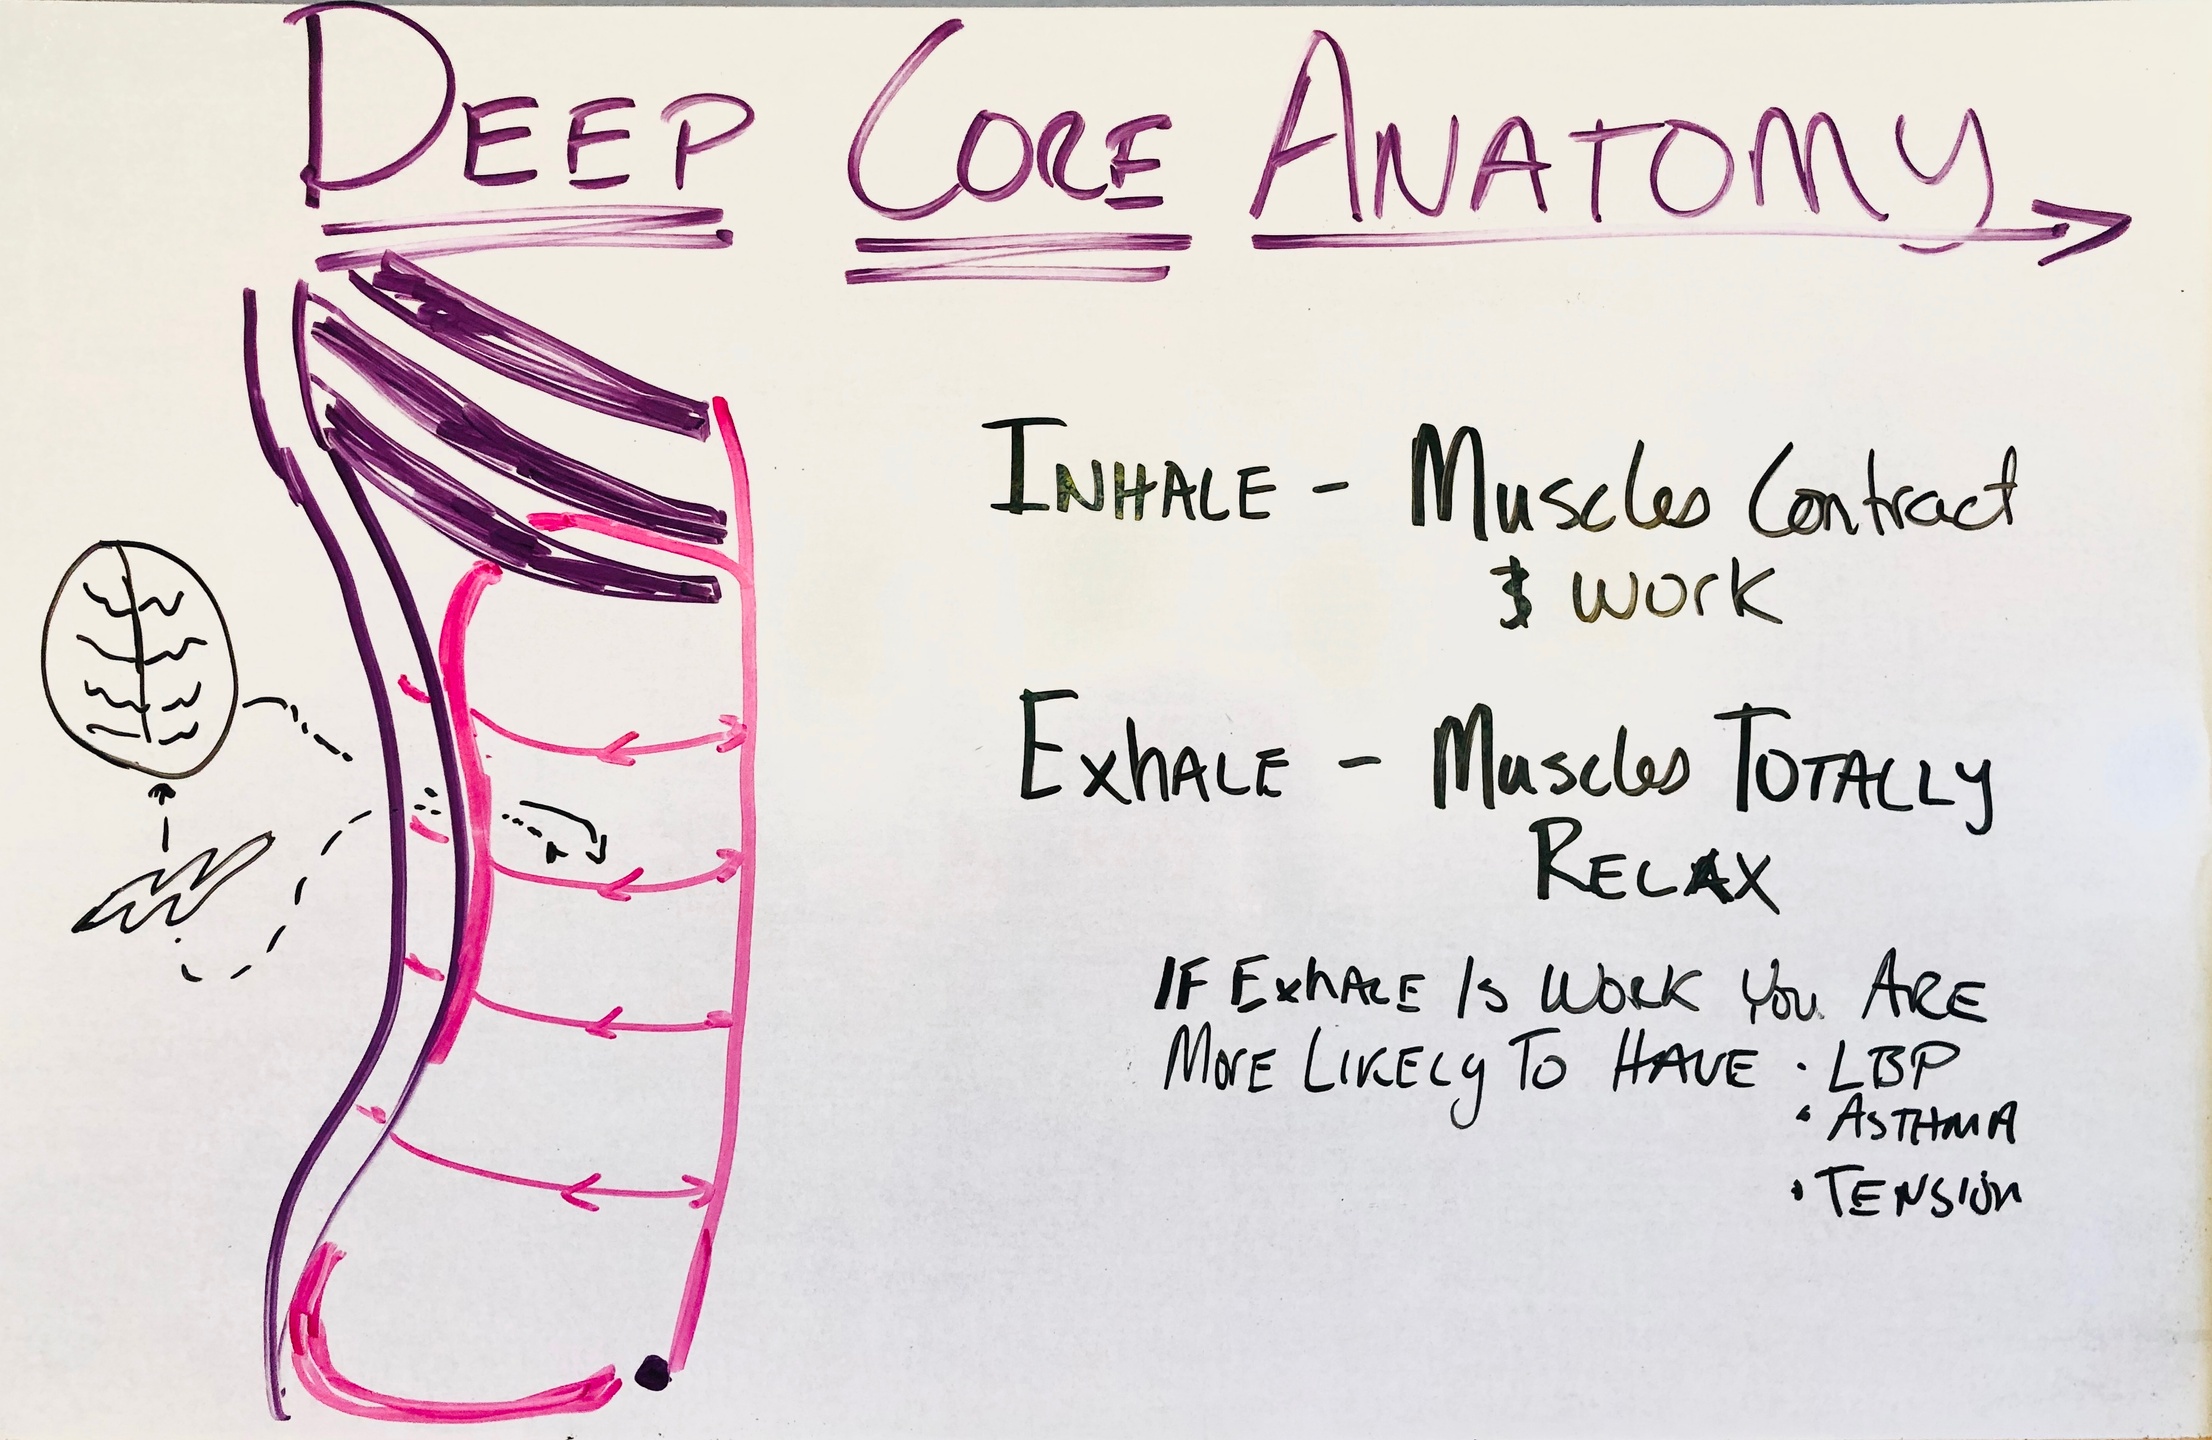 DEEP CORE ANATOMY
INHALE - Muscles Contract
& WORK
ExhALE - Muscles TOTALLY
RELAX
IF ExhALE Is WORK You ARE
MORE LIKELY TO HAVE · LBP
· ASTHMA
· TENSION